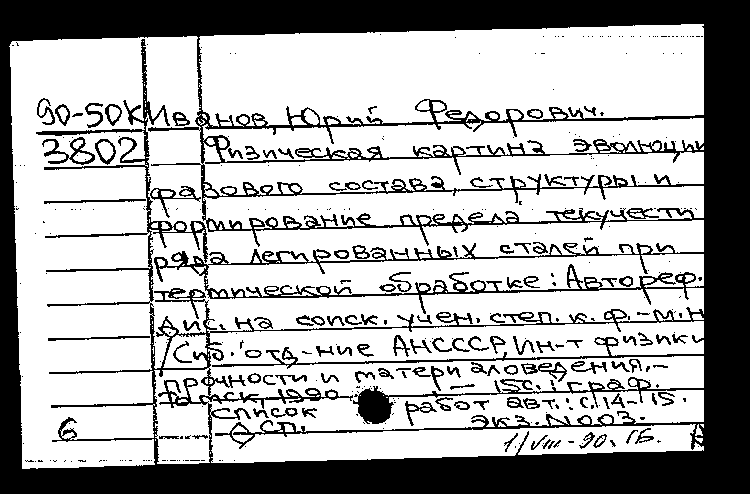 90-50К Иванов, Юрий Федорович.
3802 Физическая картина эволюции
фазового состава, структуры и
формирование предела текучести
ряда легированных сталей при
термической обработке: Автореф.
дис. на соиск. учен. степ. к. ф.-м. н
/Сиб. отд-ние АНСССР, Ин-т физики
прочности и материаловедения.-
Томск, 1990.- 15с.: граф.
Список работ авт.: с.14-15.
6 сп. Экз. N003.
1/VIII-90. 1Б.